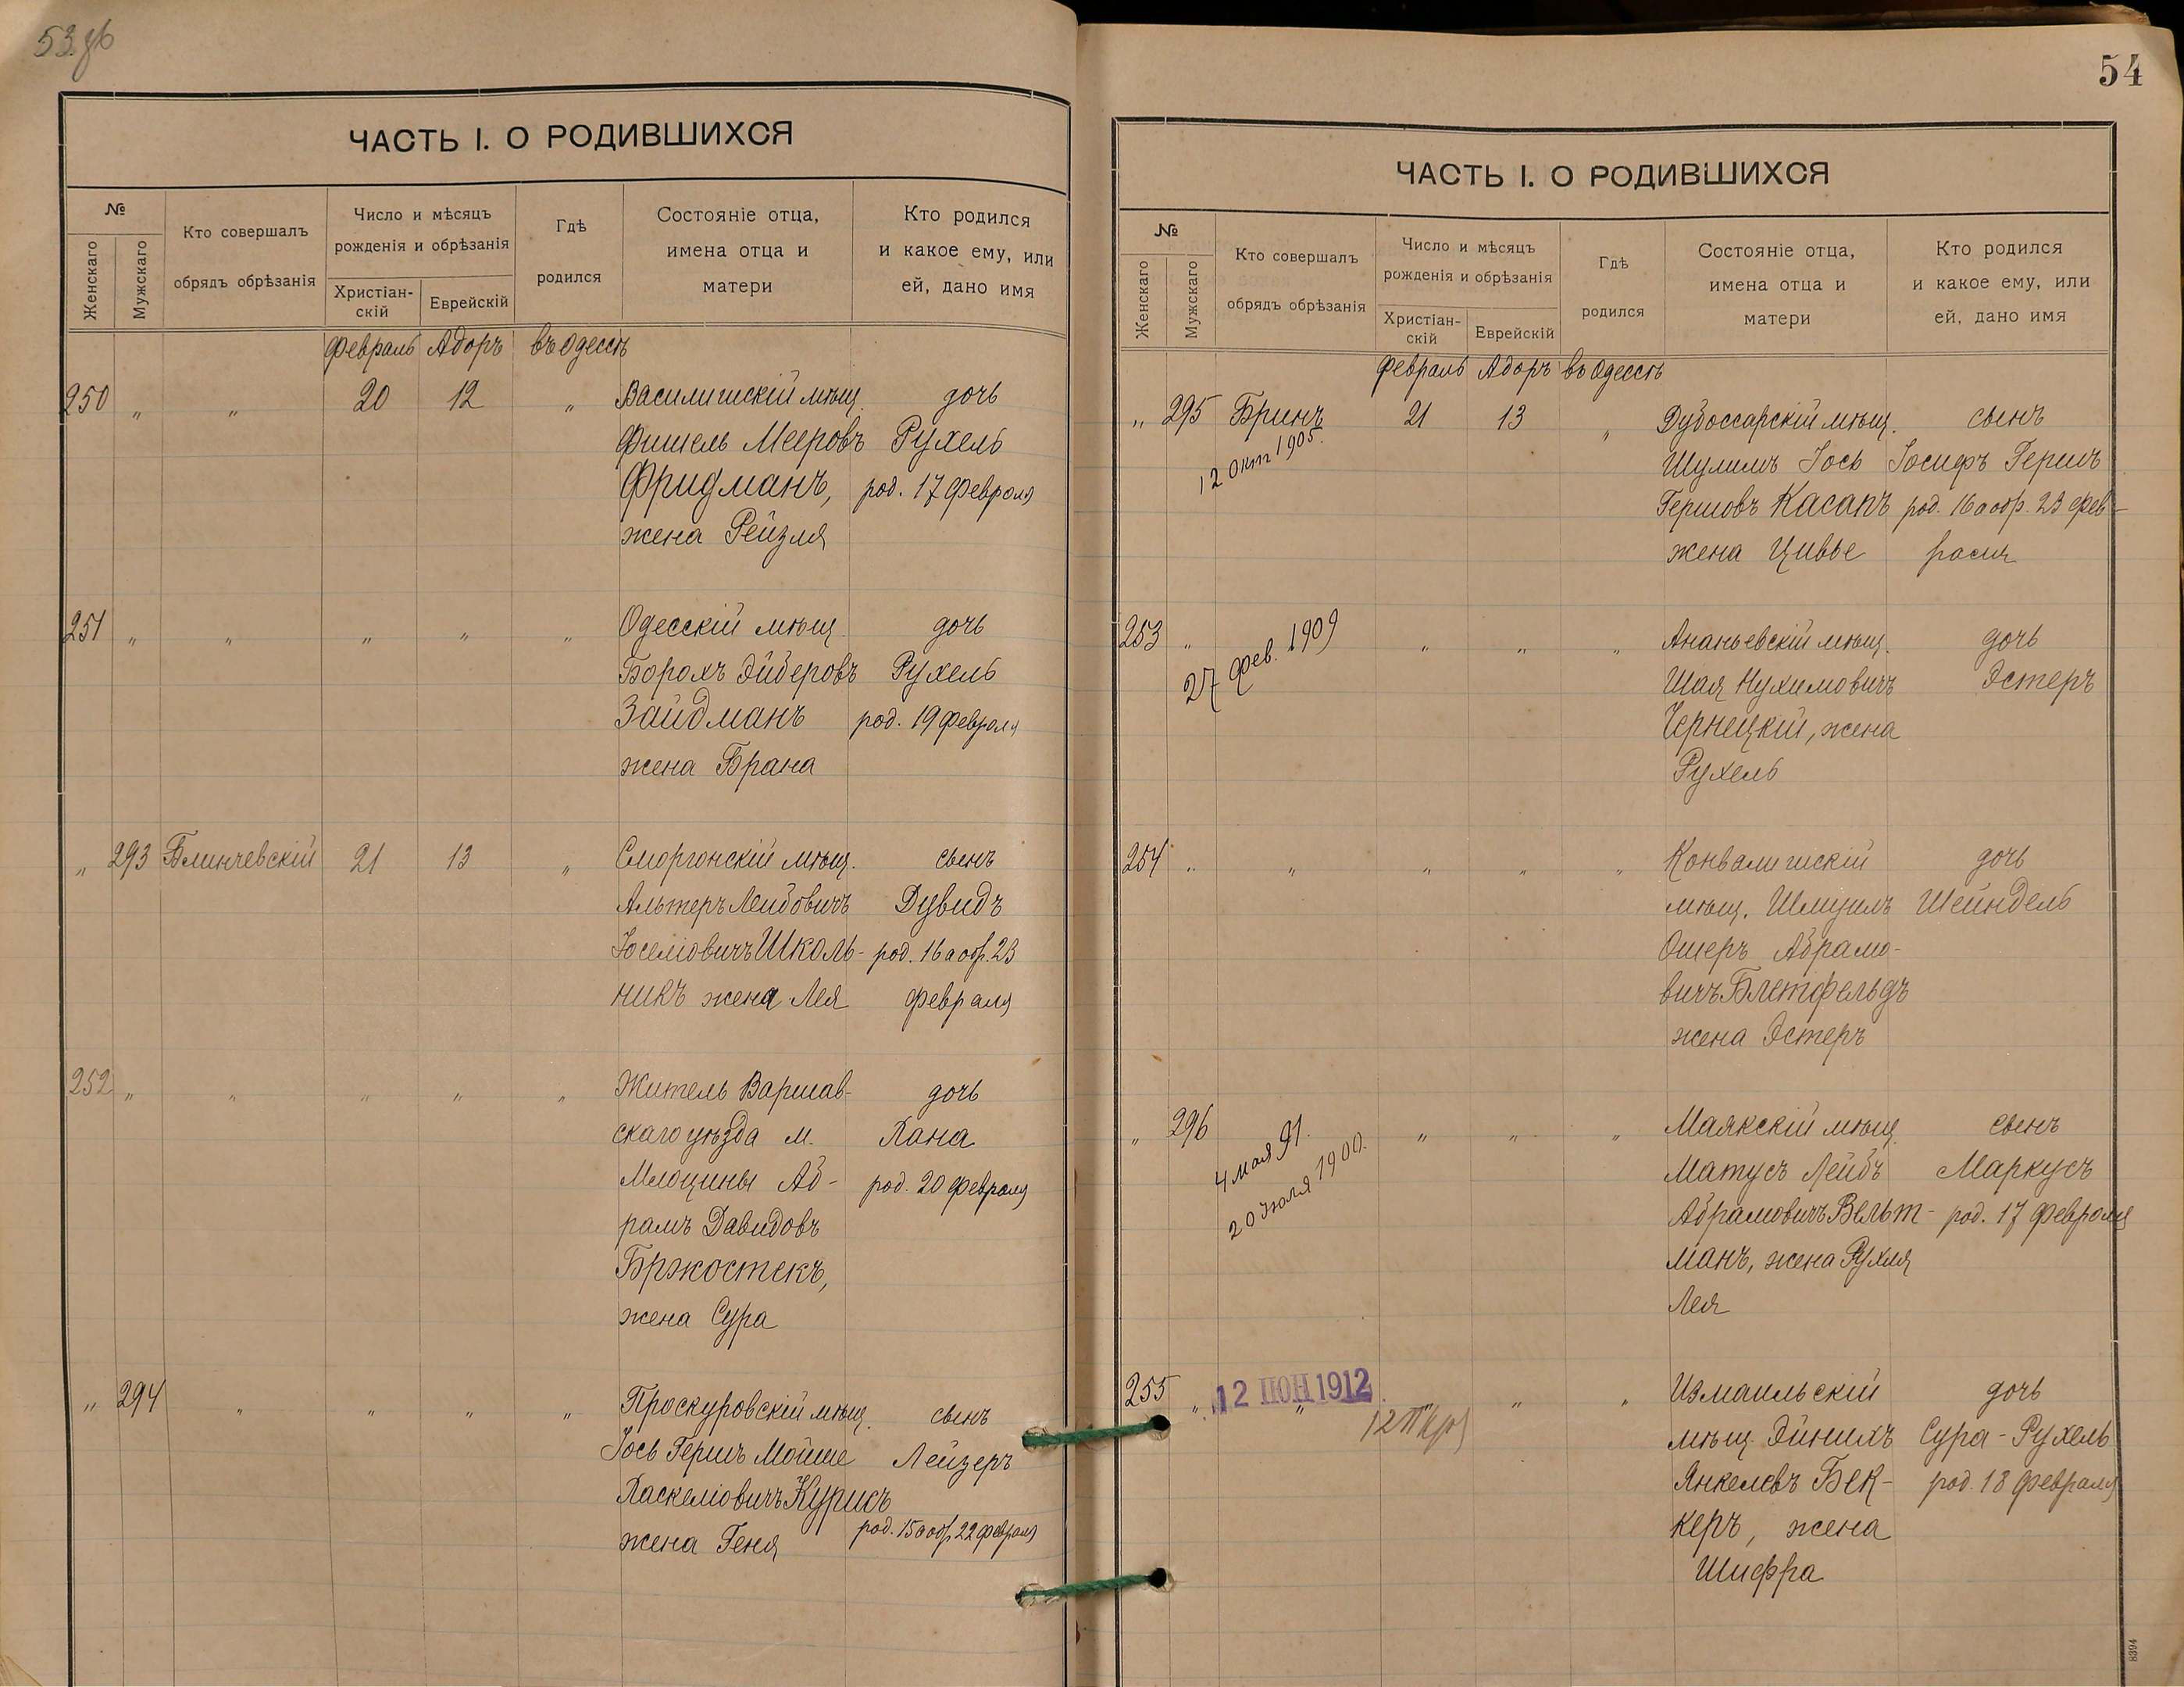 ЧАСТЬ I. О РОДИВШИХСЯ
№
Женскаго
Мужскаго
Кто совершалъ
обрядъ обрѣзанія
Число и мѣсяцъ
рожденія и обрѣзанія
Христіан-
скій
Еврейскій
Гдѣ
родился
Состояніе отца,
имена отца и
матери
Кто родился
и какое ему, или
ей, дано имя
Февраль Адоръ въ Одессѣ
250 „ „ 20 12 „ Василишскій мѣщ. дочь
Фишель Мееровъ Рухель
Фридманъ, род. 17 февраля
жена Рейзля
251 „ „ „ „ „ Одесскій мѣщ. дочь
Борохъ Эйберовъ Рухель
Зайдманъ род. 19 февраля
жена Брана
„ 293 Блинчевскій 21 13 „ Сморгонскій мѣщ. сынъ
Альтеръ Лейбовичъ Дувидъ
Іоселіовичъ Школь- род. 16 а обр. 23
никъ жена Лея февраля
252 „ „ „ „ „ Житель Варшав- дочь
скаго уѣзда м. Хана
Млоцины Аб- род. 20 февраля
рамъ Давидовъ
Бржостекъ,
жена Сура
„ 294 „ „ „ „ Проскуровскій мѣщ. сынъ
Іось Гершъ Мойше Лейзеръ
Хаскеліовичъ Курисъ
род. 15 а обр. 22 февраля
жена Геня
54
ЧАСТЬ I. О РОДИВШИХСЯ
№
Женскаго
Мужскаго
Кто совершалъ
обрядъ обрѣзанія
Число и мѣсяцъ
рожденія и обрѣзанія
Христіан-
скій
Еврейскій
Гдѣ
родился
Состояніе отца,
имена отца и
матери
Кто родился
и какое ему, или
ей, дано имя
Февраль Адоръ въ Одессѣ
„ 295 Бринъ 21 13 „ Дубоссарскій мѣщ. сынъ
12 Окт 1905.
Шулимъ Іось Іосифъ Гершъ
Гершовъ Касапъ род. 16 а обр. 23 фев-
жена Цивье раля
253 „ „ „ „ Ананьевскій мѣщ. дочь
27 фев. 1909
Шая Нухимовичъ Эстеръ
Чернецкій, жена
Рухель
254 „ „ „ „ „ Конвалишскій дочь
мѣщ. Шмуилъ Шейндель
Ошеръ Абрамо-
вичъ Блетфельдъ
жена Эстеръ
„ 296 „ „ „ Маякскій мѣщ. сынъ
4 мая 91.
20 Іюля 1900.
Матусъ Лейбъ Маркусъ
Абрамовичъ Вельт- род. 17 февраля
манъ, жена Рухля
Лея
255 „ 12 ІЮН 1912 „ „ „ Измаильскій дочь
мѣщ. Эйнихъ Сура-Рухель
Янкелевъ Бек- род. 18 февраля
керъ, жена
Шифра
8394